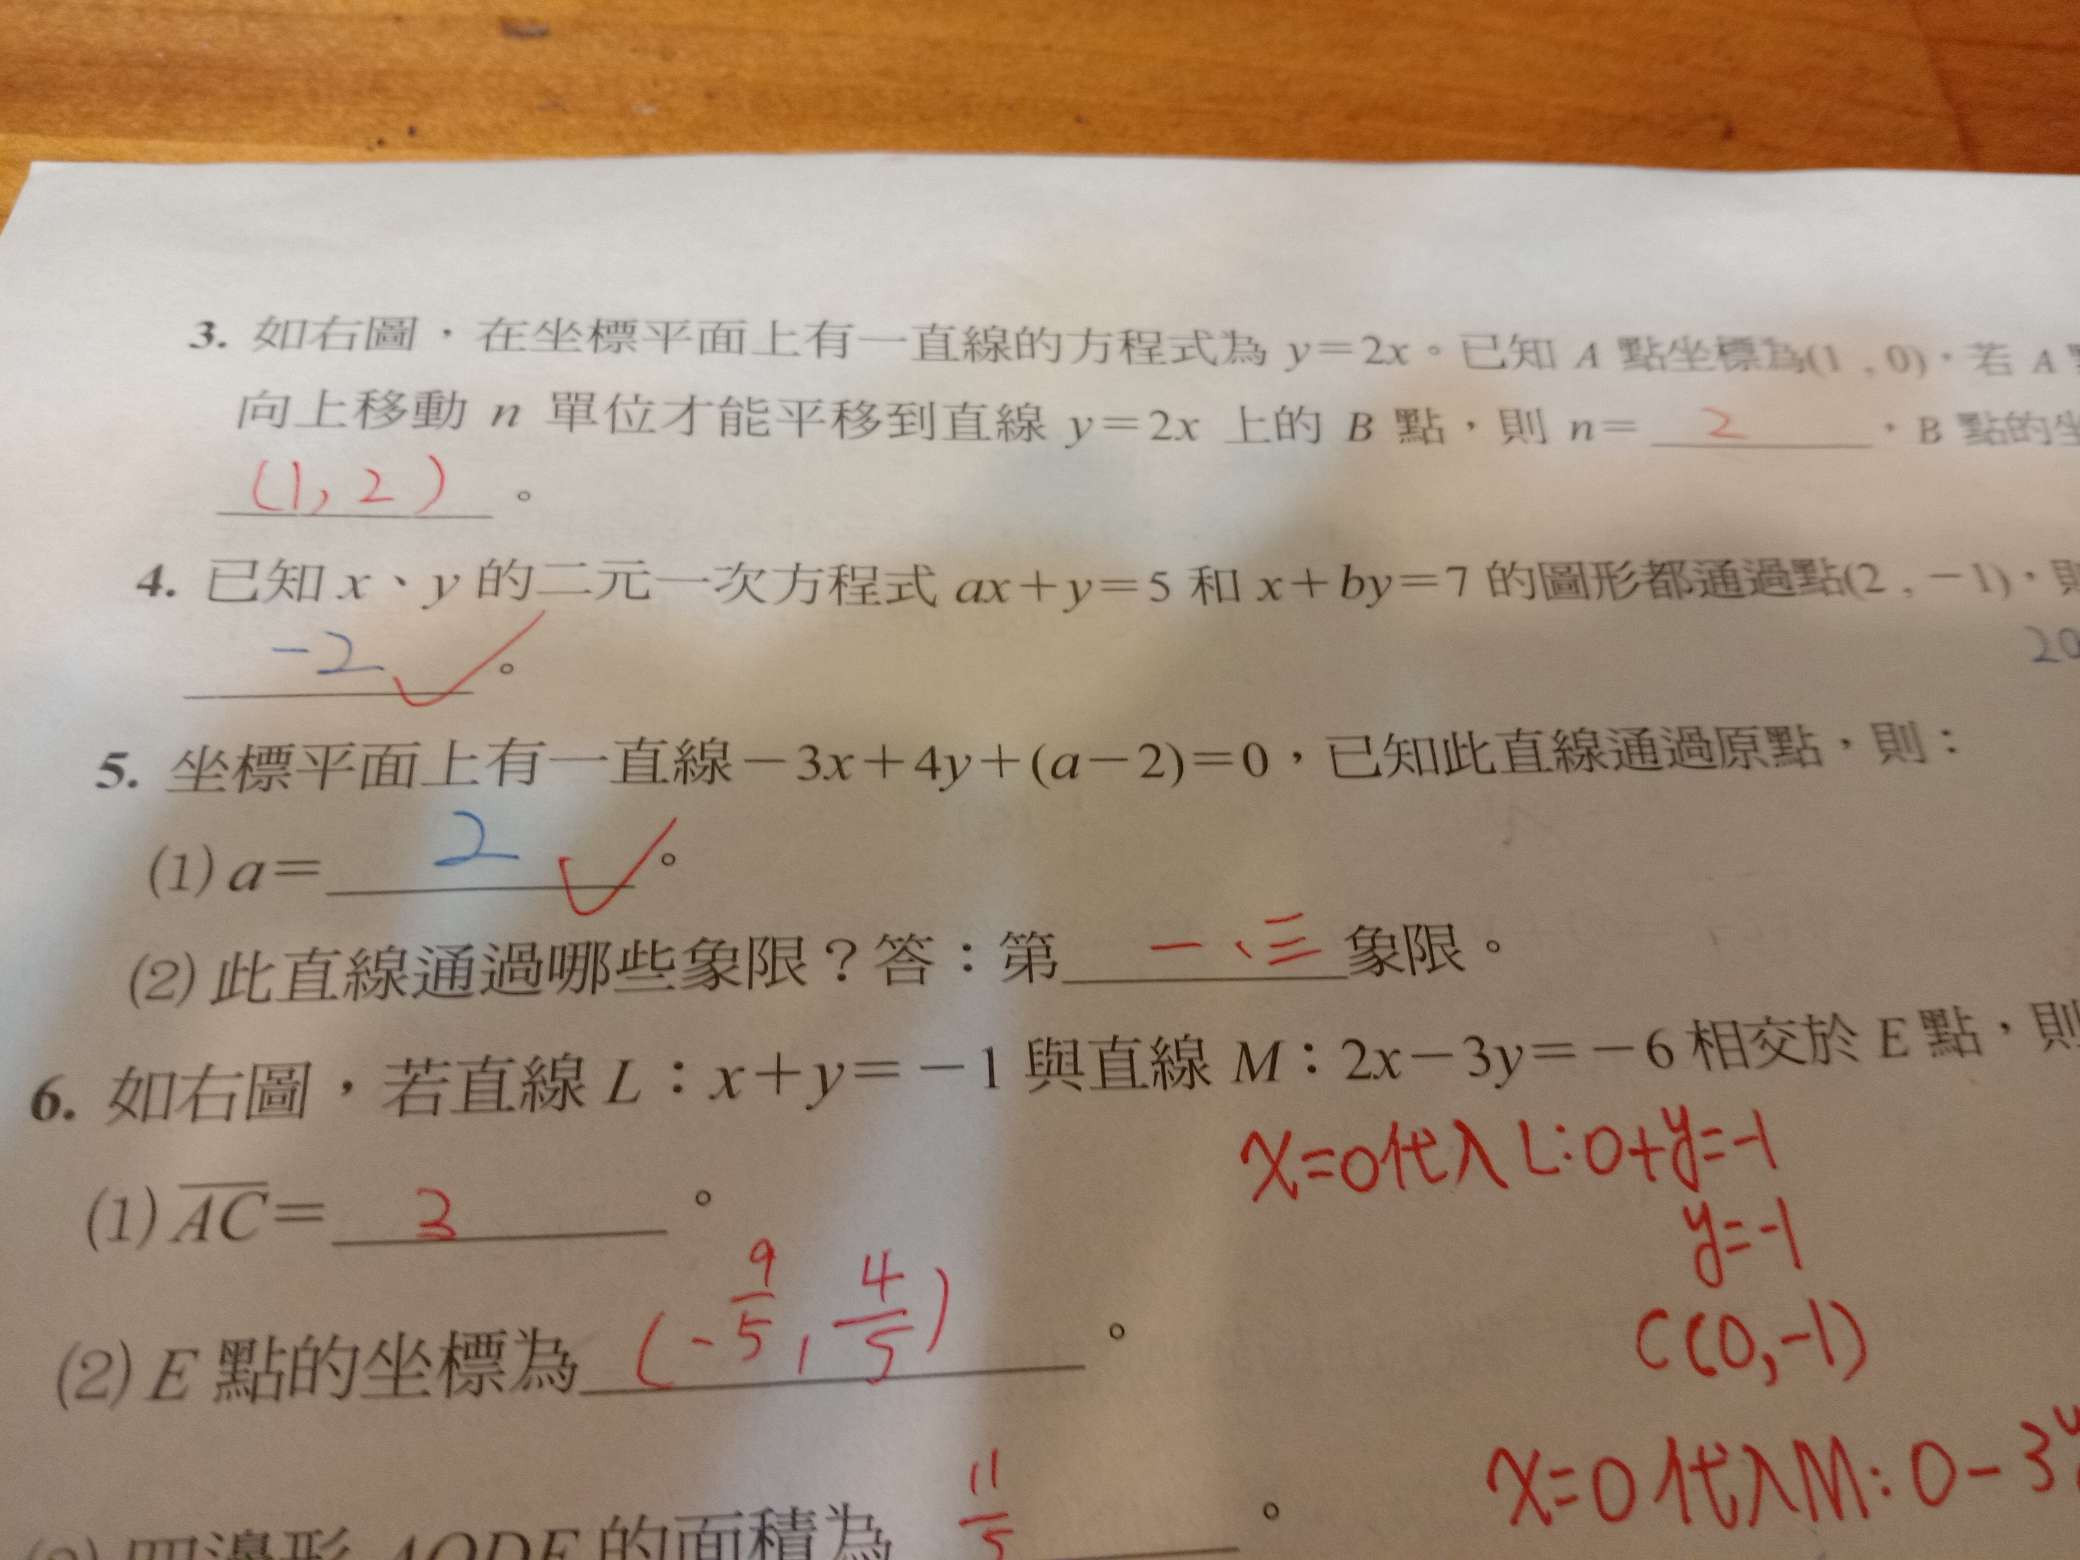 3. 如右圖，在坐標平面上有一直線的方程式為 y=2x。已知 A 點坐標為(1 , 0)，若 A
向上移動 n 單位才能平移到直線 y=2x 上的 B 點，則 n= 2 ，B 點的
(1, 2) 。
4. 已知 x、y 的二元一次方程式 ax+y=5 和 x+by=7 的圖形都通過點(2 , -1)，則
-2 。
5. 坐標平面上有一直線-3x+4y+(a-2)=0，已知此直線通過原點，則：
(1) a= 2 。
(2) 此直線通過哪些象限？答：第 一、三 象限。
6. 如右圖，若直線 L：x+y=-1 與直線 M：2x-3y=-6 相交於 E 點，則
x=0代入 L:0+y=-1
y=-1
(1) AC= 3 。
C(0,-1)
(2) E 點的坐標為 (-9/5, 4/5) 。
x=0代入M:0-3y
四邊形 AODE 的面積為 11/5 。